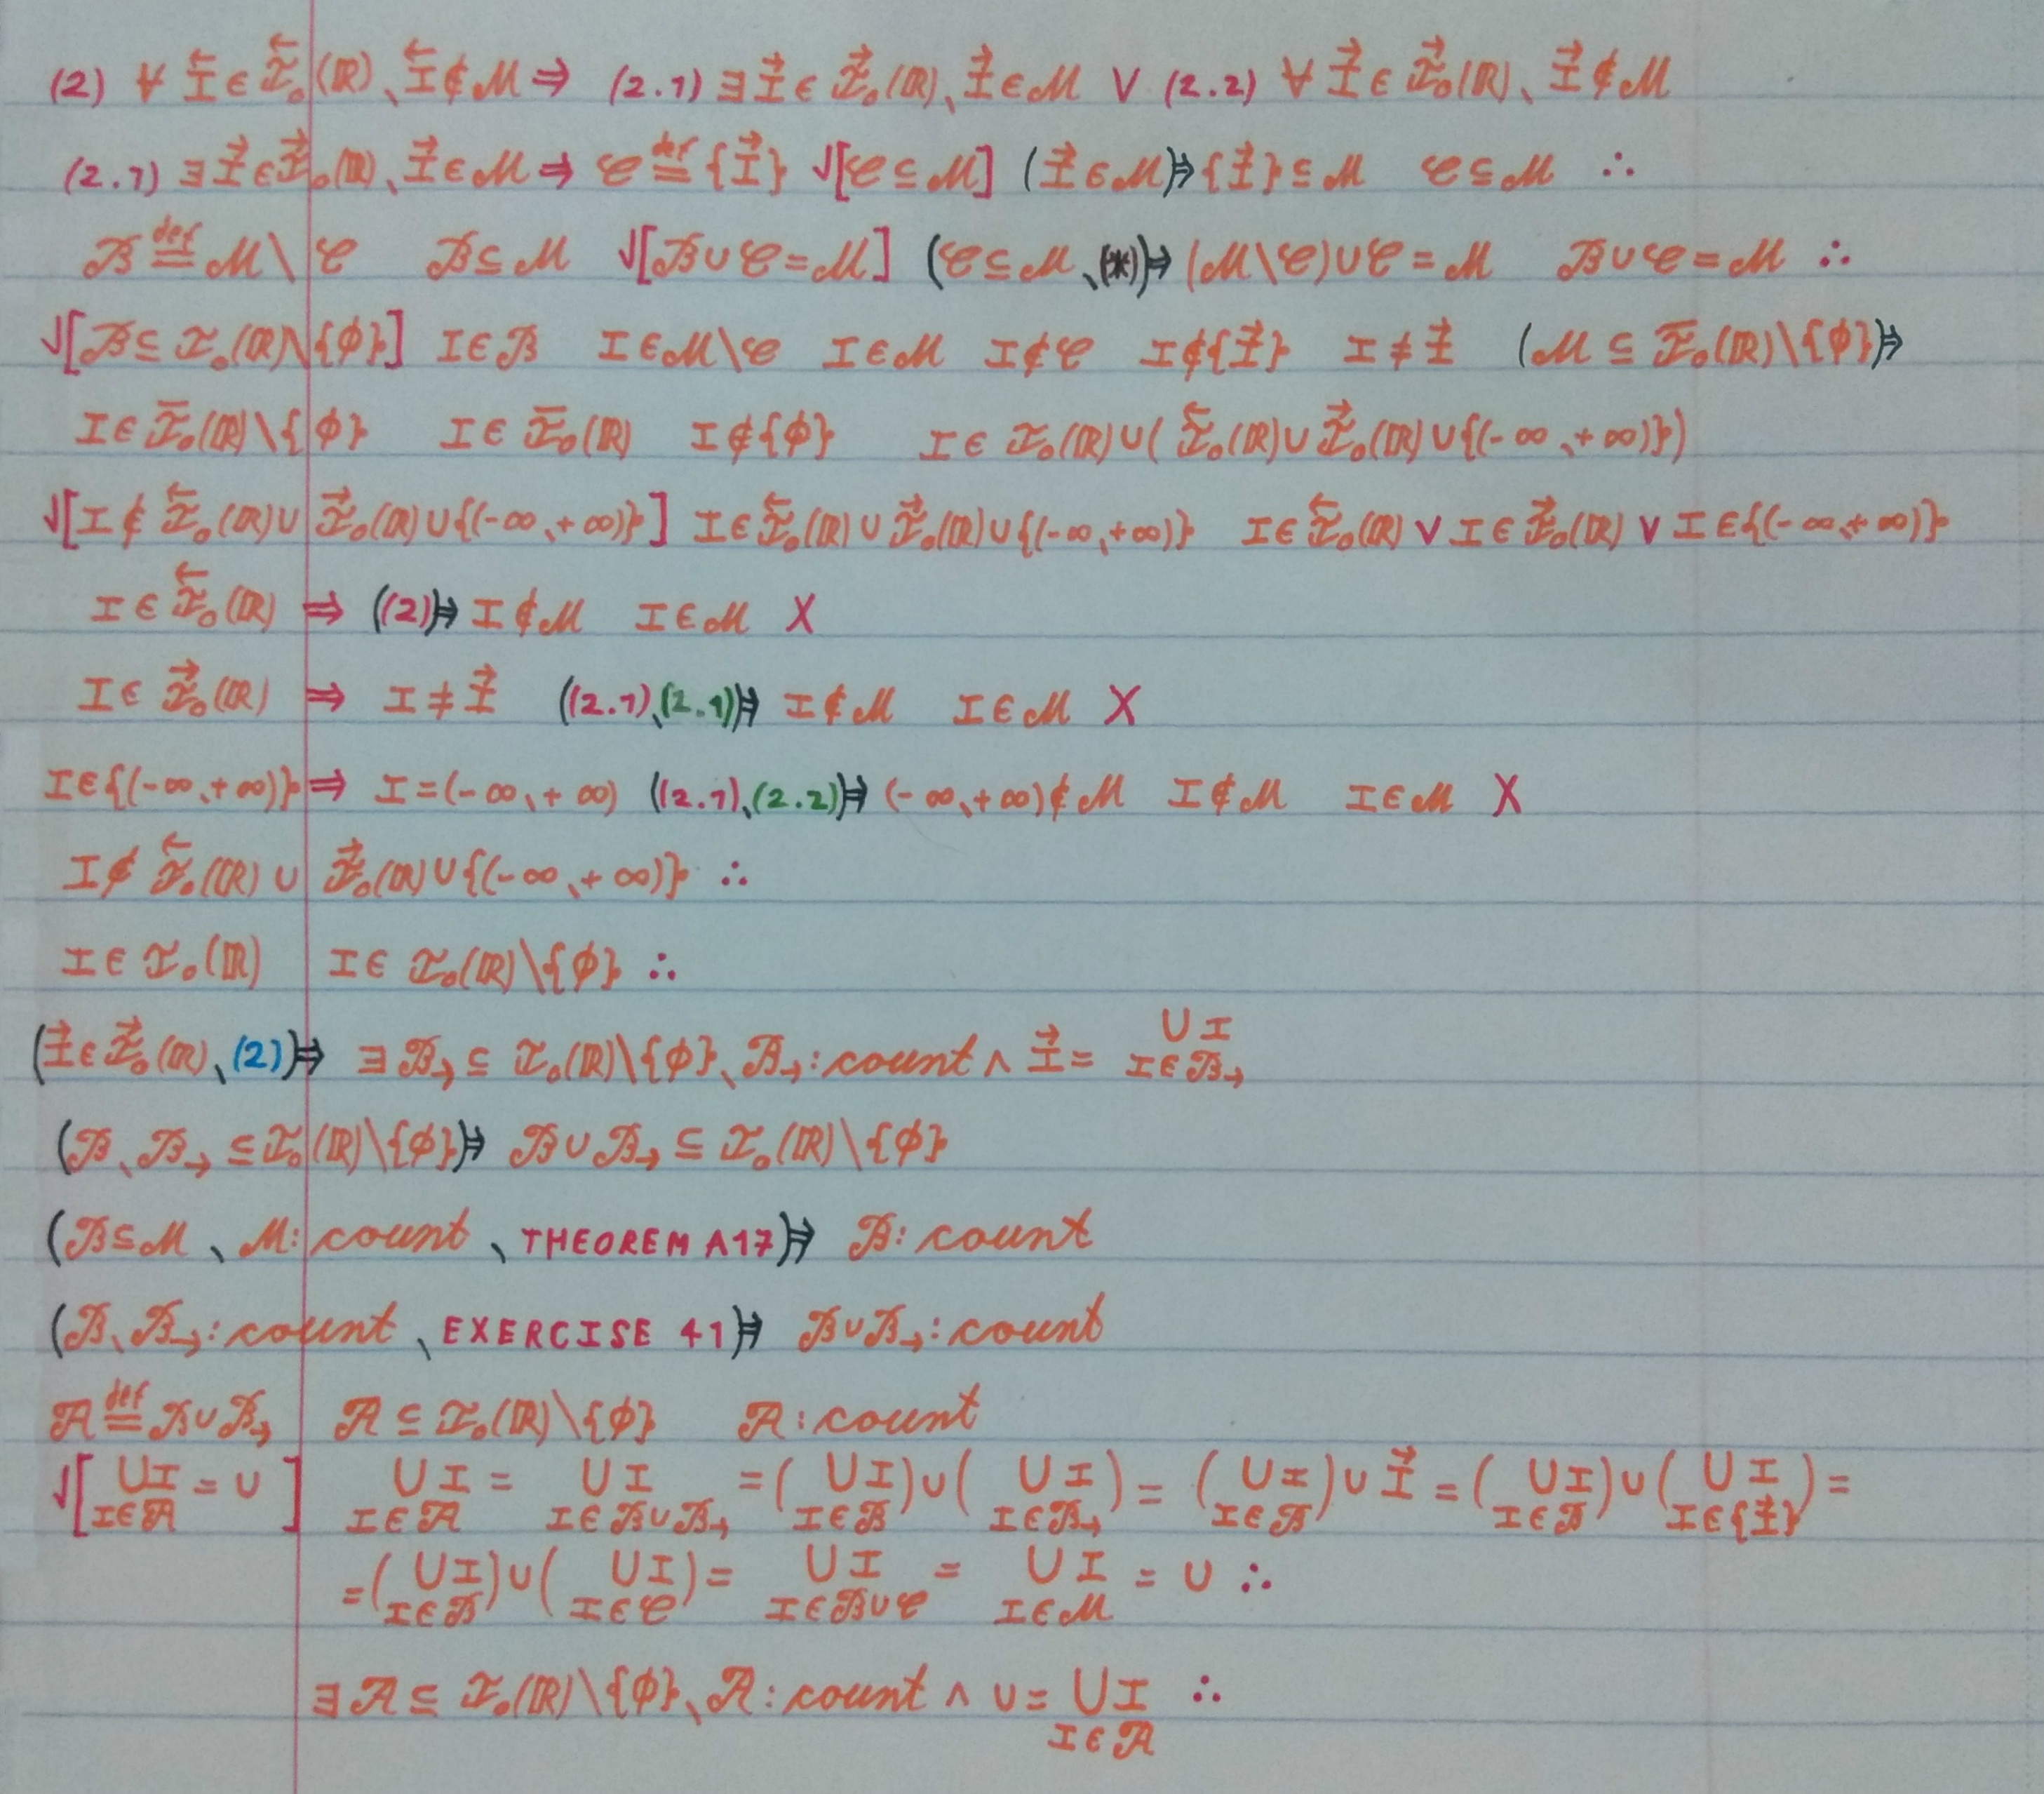 (2) ∀ I⃖ ∈ ℐ⃖ₒ(ℝ)、I⃖ ∉ ℳ ⇒ (2.1) ∃ I⃗ ∈ ℐ⃗ₒ(ℝ)、I⃗ ∈ ℳ ∨ (2.2) ∀ I⃗ ∈ ℐ⃗ₒ(ℝ)、I⃗ ∉ ℳ
(2.1) ∃ I⃗ ∈ ℐ⃗ₒ(ℝ)、I⃗ ∈ ℳ ⇒ 𝒞 ≝ {I⃗} √[𝒞 ⊆ ℳ] (I⃗ ∈ ℳ)⇒ {I⃗} ⊆ ℳ 𝒞 ⊆ ℳ ∴
ℬ ≝ ℳ \ 𝒞 ℬ ⊆ ℳ √[ℬ ∪ 𝒞 = ℳ] (𝒞 ⊆ ℳ、(*))⇒ (ℳ \ 𝒞) ∪ 𝒞 = ℳ ℬ ∪ 𝒞 = ℳ ∴
√[ℬ ⊆ ℐₒ(ℝ) \ {ϕ}] I ∈ ℬ I ∈ ℳ \ 𝒞 I ∈ ℳ I ∉ 𝒞 I ∉ {I⃗} I ≠ I⃗ (ℳ ⊆ ℐ̅ₒ(ℝ) \ {ϕ})⇒
I ∈ ℐ̅ₒ(ℝ) \ {ϕ} I ∈ ℐ̅ₒ(ℝ) I ∉ {ϕ} I ∈ ℐₒ(ℝ) ∪ (ℐ⃖ₒ(ℝ) ∪ ℐ⃗ₒ(ℝ) ∪ {(-∞、+∞)})
√[I ∉ ℐ⃖ₒ(ℝ) ∪ ℐ⃗ₒ(ℝ) ∪ {(-∞、+∞)}] I ∈ ℐ⃖ₒ(ℝ) ∪ ℐ⃗ₒ(ℝ) ∪ {(-∞、+∞)} I ∈ ℐ⃖ₒ(ℝ) ∨ I ∈ ℐ⃗ₒ(ℝ) ∨ I ∈ {(-∞、+∞)}
I ∈ ℐ⃖ₒ(ℝ) ⇒ ((2))⇒ I ∉ ℳ I ∈ ℳ X
I ∈ ℐ⃗ₒ(ℝ) ⇒ I ≠ I⃗ ((2.1)、(2.1))⇒ I ∉ ℳ I ∈ ℳ X
I ∈ {(-∞、+∞)} ⇒ I = (-∞、+∞) ((2.1)、(2.2))⇒ (-∞、+∞) ∉ ℳ I ∉ ℳ I ∈ ℳ X
I ∉ ℐ⃖ₒ(ℝ) ∪ ℐ⃗ₒ(ℝ) ∪ {(-∞、+∞)} ∴
I ∈ ℐₒ(ℝ) I ∈ ℐₒ(ℝ) \ {ϕ} ∴
(I⃗ ∈ ℐ⃗ₒ(ℝ)、(2))⇒ ∃ ℬ→ ⊆ ℐₒ(ℝ) \ {ϕ}、ℬ→ : count ∧ I⃗ = ∪ I I∈ℬ→
(ℬ、ℬ→ ⊆ ℐₒ(ℝ) \ {ϕ})⇒ ℬ ∪ ℬ→ ⊆ ℐₒ(ℝ) \ {ϕ}
(ℬ ⊆ ℳ、ℳ : count、THEOREM A17)⇒ ℬ : count
(ℬ、ℬ→ : count、EXERCISE 41)⇒ ℬ ∪ ℬ→ : count
𝒜 ≝ ℬ ∪ ℬ→ 𝒜 ⊆ ℐₒ(ℝ) \ {ϕ} 𝒜 : count
√[∪ I I∈𝒜 = U] ∪ I I∈𝒜 = ∪ I I∈ℬ∪ℬ→ = (∪ I I∈ℬ) ∪ (∪ I I∈ℬ→) = (∪ I I∈ℬ) ∪ I⃗ = (∪ I I∈ℬ) ∪ (∪ I I∈{I⃗}) =
= (∪ I I∈ℬ) ∪ (∪ I I∈𝒞) = ∪ I I∈ℬ∪𝒞 = ∪ I I∈ℳ = U ∴
∃ 𝒜 ⊆ ℐₒ(ℝ) \ {ϕ}、𝒜 : count ∧ U = ∪ I I∈𝒜 ∴